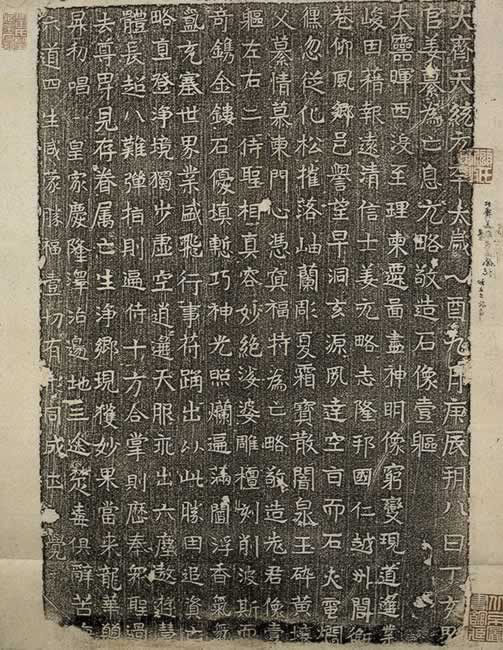 大齊天統元年太歲乙酉九月庚辰朔八日丁亥
官姜纂為亡息元略敬造石像壹軀
夫靈暉西没至理東遷啚盡神明像窮變現道逢業
峻因藉報遠清信士姜元略志隆邦國仁越州閭衡
巷仰風鄉邑譽望早洞玄源夙達空旨而石火電間
倏忽從化松摧落岫蘭彫夏霜寶散闇泉玉碎黃壤
父纂情慕東門心憑冥福特為亡略敬造老君像壹
軀左右二侍聖相真容妙絕婆娑雕檀刻削波斯而
奇鐫金鏤石優填慙巧神光照爛遍滿閻浮香氣氛
氳充塞世界業感飛行事符踊出以此勝因追資亡
略直登淨境獨步虛空逍遥天服永出六塵遨遊慧
體長超八難彈指則遍侍十方合掌則歷奉眾聖過
去尊卑見存眷属亡生淨鄉現獲妙果當来龍華願
昇初唱皇家慶隆澤洎邊地三途楚毒俱辭苦海
六道四生咸蒙勝福壹切有形同成正覺